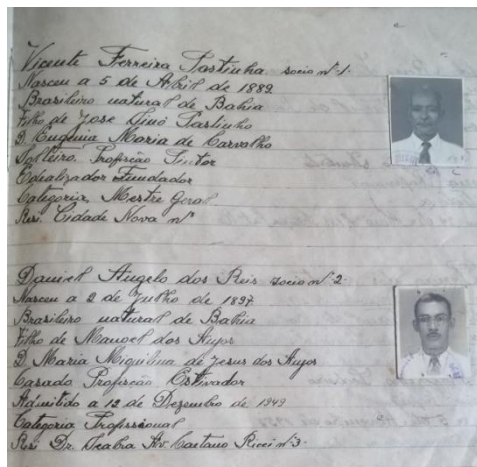 Vicente Ferreira Pastinha socio nº 1.
Nasceu a 5 de Abril de 1889
Brasileiro natural de Bahia
Filho de José Pastinho
D. Eugenia Maria de Carvalho
Solteiro. Profissão Pintor
Fundador
Categoria, Mestre Geral
Res. Cidade Nova nº
Daniel Angelo dos Reis socio nº 2.
Nasceu a 2 de Julho de 1897
Brasileiro natural de Bahia
Filho de Manoel dos Anjos
D Maria Miquilina de Jesus dos Anjos
Casado Profissão Estivador
Admitido a 12 de Dezembro de 1949
Categoria Profissional
Res. Dr. Seabra Av. Caetano Ricci nº 3.